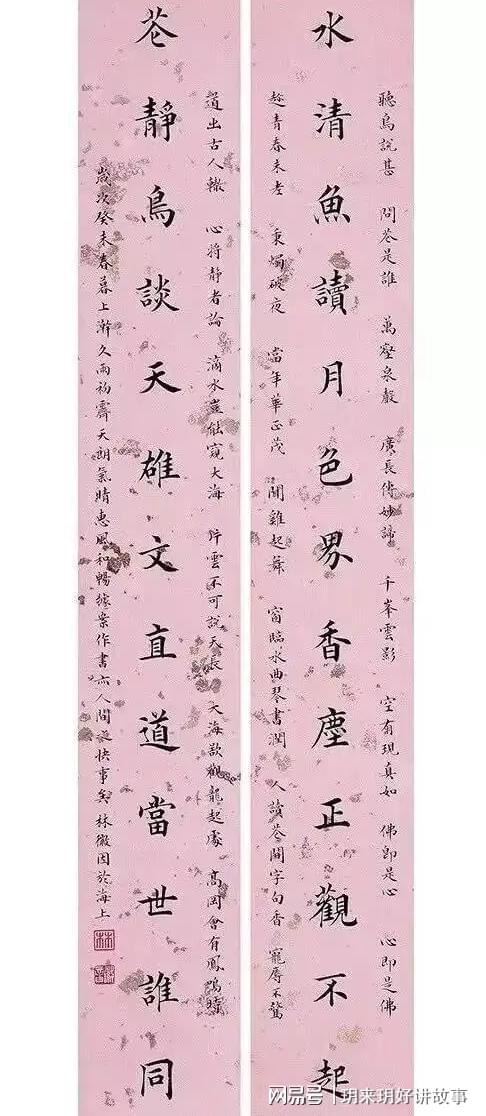 聽鳥說甚 問花是誰 萬壑泉聲 廣長傳妙諦 千峯雲影 空有現真如 佛即是心 心即是佛
水清魚讀月色界香塵正觀不起
趁青春未老 秉燭破夜 當年華正茂 聞雞起舞 窗臨水曲琴書潤 人讀花間字句香 寵辱不驚
道出古人轍 心將静者論 滴水豈能窺大海 片雲不可說天長 大海欲觀龍起處 高岡會有鳳鳴時
花靜鳥談天雄文直道當世誰同
歲次癸未春暮上澣久雨初霽天朗氣晴惠風和暢據案作書亦人間之快事矣 林徽因於海上
网易号 | 玥来玥好讲故事